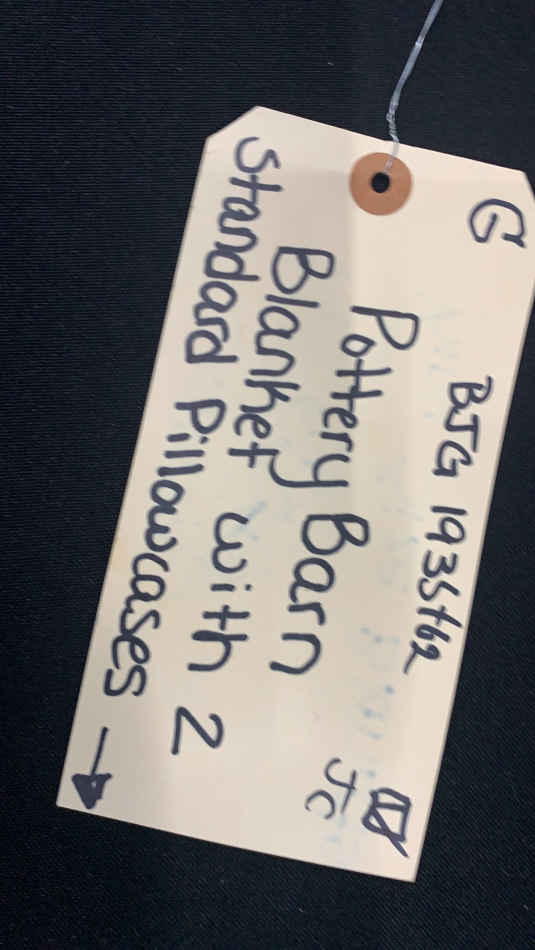 G
Pottery Barn
Blanket with 2
Standard Pillowcases
JC